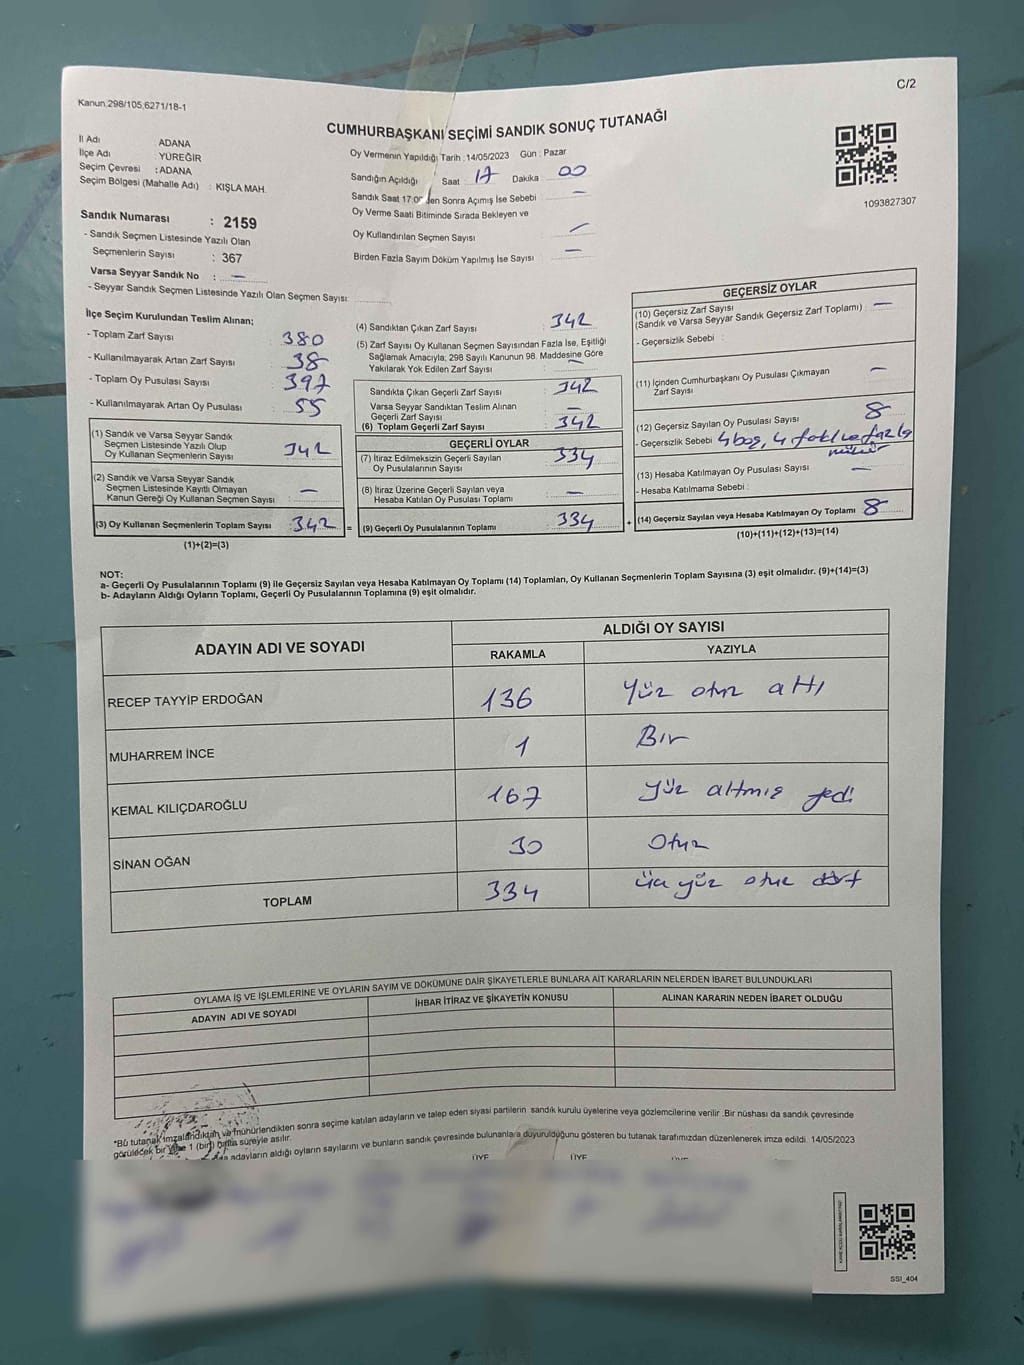 C/2
Kanun.298/105,6271/18-1
CUMHURBAŞKANI SEÇİMİ SANDIK SONUÇ TUTANAĞI
İl Adı ADANA
İlçe Adı : YÜREĞİR
Seçim Çevresi : ADANA
Seçim Bölgesi (Mahalle Adı) : KIŞLA MAH.
Oy Vermenin Yapıldığı Tarih :14/05/2023 Gün : Pazar
Sandığın Açıldığı Saat 17 Dakika 00
Sandık Saat 17:00'den Sonra Açımış İse Sebebi : —
Oy Verme Saati Bitiminde Sırada Bekleyen ve
Oy Kullandırılan Seçmen Sayısı : —
Birden Fazla Sayım Döküm Yapılmış İse Sayısı : —
1093827307
Sandık Numarası : 2159
- Sandık Seçmen Listesinde Yazılı Olan
Seçmenlerin Sayısı : 367
Varsa Seyyar Sandık No : —
- Seyyar Sandık Seçmen Listesinde Yazılı Olan Seçmen Sayısı:
İlçe Seçim Kurulundan Teslim Alınan;
- Toplam Zarf Sayısı : 380
- Kullanılmayarak Artan Zarf Sayısı : 38
- Toplam Oy Pusulası Sayısı : 397
- Kullanılmayarak Artan Oy Pusulası : 55
(1) Sandık ve Varsa Seyyar Sandık
Seçmen Listesinde Yazılı Olup
Oy Kullanan Seçmenlerin Sayısı : 342
(2) Sandık ve Varsa Seyyar Sandık
Seçmen Listesinde Kayıtlı Olmayan
Kanun Gereği Oy Kullanan Seçmen Sayısı : —
(3) Oy Kullanan Seçmenlerin Toplam Sayısı 342 =
(1)+(2)=(3)
(4) Sandıktan Çıkan Zarf Sayısı : 342
(5) Zarf Sayısı Oy Kullanan Seçmen Sayısından Fazla İse, Eşitliği
Sağlamak Amacıyla; 298 Sayılı Kanunun 98. Maddesine Göre
Yakılarak Yok Edilen Zarf Sayısı : —
Sandıkta Çıkan Geçerli Zarf Sayısı : 342
Varsa Seyyar Sandıktan Teslim Alınan
Geçerli Zarf Sayısı : —
(6) Toplam Geçerli Zarf Sayısı : 342
GEÇERLİ OYLAR
(7) İtiraz Edilmeksizin Geçerli Sayılan
Oy Pusulalarının Sayısı : 334
(8) İtiraz Üzerine Geçerli Sayılan veya
Hesaba Katılan Oy Pusulası Toplamı : —
(9) Geçerli Oy Pusulalarının Toplamı : 334 +
GEÇERSİZ OYLAR
(10) Geçersiz Zarf Sayısı
(Sandık ve Varsa Seyyar Sandık Geçersiz Zarf Toplamı) : —
- Geçersizlik Sebebi :
(11) İçinden Cumhurbaşkanı Oy Pusulası Çıkmayan
Zarf Sayısı : —
(12) Geçersiz Sayılan Oy Pusulası Sayısı : 8
- Geçersizlik Sebebi : 4 boş, 4 fazla
mühür
(13) Hesaba Katılmayan Oy Pusulası Sayısı : —
- Hesaba Katılmama Sebebi :
(14) Geçersiz Sayılan veya Hesaba Katılmayan Oy Toplamı 8
(10)+(11)+(12)+(13)=(14)
NOT:
a- Geçerli Oy Pusulalarının Toplamı (9) ile Geçersiz Sayılan veya Hesaba Katılmayan Oy Toplamı (14) Toplamları, Oy Kullanan Seçmenlerin Toplam Sayısına (3) eşit olmalıdır. (9)+(14)=(3)
b- Adayların Aldığı Oyların Toplamı, Geçerli Oy Pusulalarının Toplamına (9) eşit olmalıdır.
ADAYIN ADI VE SOYADI ALDIĞI OY SAYISI
RAKAMLA YAZIYLA
RECEP TAYYİP ERDOĞAN 136 Yüz otuz altı
MUHARREM İNCE 1 Bir
KEMAL KILIÇDAROĞLU 167 yüz altmış yedi
SİNAN OĞAN 30 Otuz
TOPLAM 334 üç yüz otuz dört
OYLAMA İŞ VE İŞLEMLERİNE VE OYLARIN SAYIM VE DÖKÜMÜNE DAİR ŞİKAYETLERLE BUNLARA AİT KARARLARIN NELERDEN İBARET BULUNDUKLARI
ADAYIN ADI VE SOYADI İHBAR İTİRAZ VE ŞİKAYETİN KONUSU ALINAN KARARIN NEDEN İBARET OLDUĞU
*Bu tutanak imzalandıktan ve mühürlendikten sonra seçime katılan adayların ve talep eden siyasi partilerin sandık kurulu üyelerine veya gözlemcilerine verilir .Bir nüshası da sandık çevresinde
görülecek bir yere 1 (bir) hafta süreyle asılır.
adayların aldığı oyların sayılarını ve bunların sandık çevresinde bulunanlara duyurulduğunu gösteren bu tutanak tarafımızdan düzenlenerek imza edildi. 14/05/2023
ÜYE ÜYE ÜYE
SSI_404